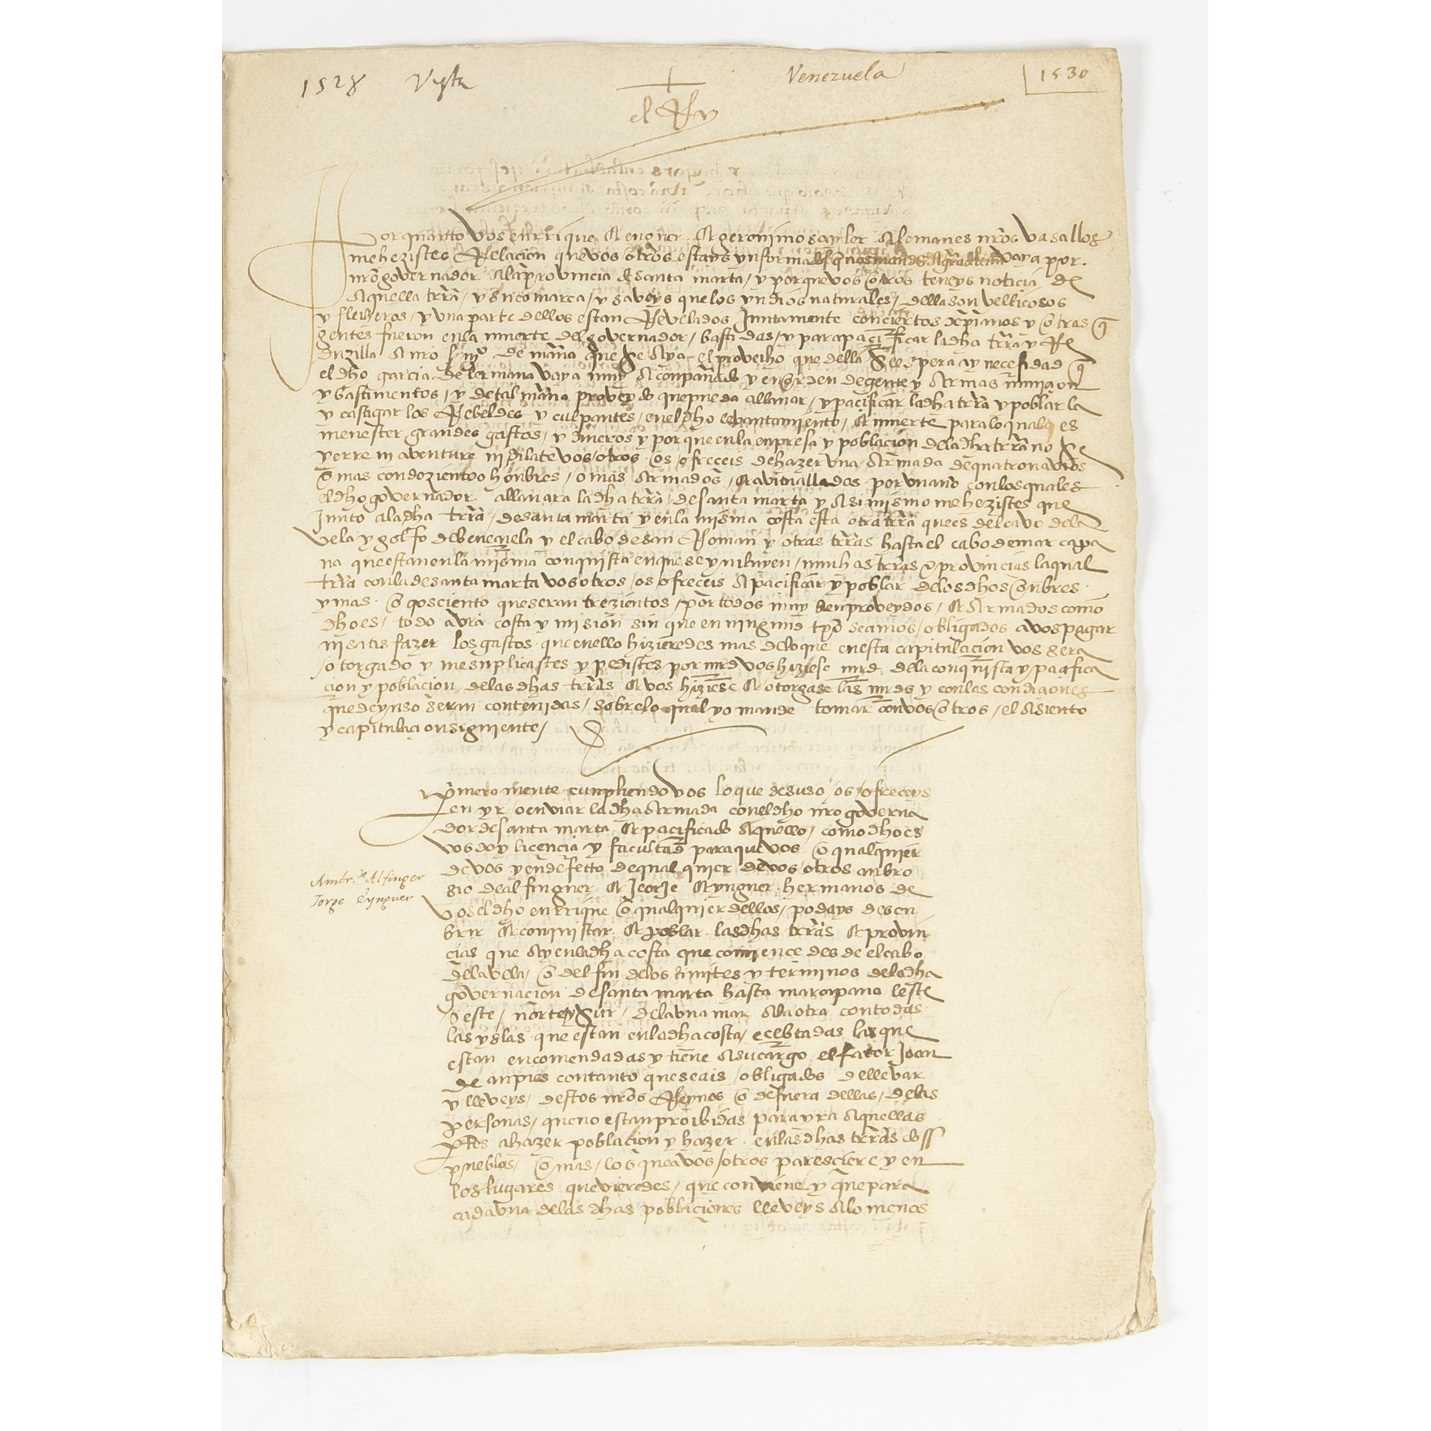 1528 Vista Venezuela 1530
el Rey
Por quanto vos enrrique eynguer e geronimo sayler alemanes nr̃os vasallos
me hezistes Relaçion que vos otros estays ynformados vaya por
nr̃o governador a la provincia de santa marta / y porque vos otros teneys noticia de
aquella trr̃a / y su comarca / y saveys que los yndios naturales / della son vellicosos
y flecheros / y una parte dellos estan Revelados Juntamente con ciertos xp̃ianos y otras
gentes fueron en la muerte del governador / bastidas / y para pacificar la dha trr̃a y Re
duzilla a nr̃o de man̄a que se aya el provecho que della se espera ay necesidad q̃
el dho garcia de lerma vaya muy aconpañado y en orden de gente y armas muniçion
y bastimentos / y de tal man̄a proveydo que pueda allanar / y pacificar la dha trr̃a y poblar la
y castigar los Rebeldes y culpantes / en el dho lebantamiento / e muerte para lo qual es
menester grandes gastos / y dineros y porque en la enpresa y poblaçion de la dha trr̃a no se
yerre ni aventure ni dilate vos otros os ofreceis de hazer una armada de quatro navios
o mas con dozientos honbres / o mas armados / e avituallados por un año con los quales
el dho governador allanara la dha trr̃a / de santa marta y asi mismo me hezistes que
Junto a la dha trr̃a / de santa marta y en la misma costa esta otra trr̃a que es del cavo de la
vela y golfo de benençuela y el cabo de san Roman y otras trr̃as hasta el cabo de marcapa
na que estan en la misma conquista en que se yncluyen / muchas trr̃as e provincias la qual
trr̃a con la de santa marta vos otros / os ofreceis a pacificar y poblar de los dhos onbres
y mas que seran trezientos / por todos muy bien proveydos / e armados como
dho es / todo a vr̃a costa y mision sin que en ningund tp̃o seamos / obligados a vos pagar
ni satisfazer los gastos que en ello hizieredes mas de lo que en esta capitulaçion vos sera
/ otorgado y me suplicastes y pedistes por mrd vos hiziese mrd de la conquista y paçifica
çion y poblaçion de las dhas trr̃as e vos hiziese e otorgase las mrds y con las condiciones
que de yuso seran contenidas / sobre lo qual yo mande tomar con vos otros / el asiento
y capitulaçion siguiente /
Primeramente cunpliendo vos lo que de suso os ofreceys
en yr o enviar la dha armada con el dho nr̃o governa
dor de santa marta e pacificado aquello / como dho es
vos doy licencia y facultad para que vos o qualquier
de vos y en defetto de qual quier de vos / otros anbro
sio de alfinguer e Jeorje eynguer hermanos de
Ambr.º Alfinger
Jorge Eynguer
vos el dho enrrique o qualquier dellos / podays descu
brir e conquistar e poblar las dhas trr̃as e provin
cias que ay en la dha costa que comience desde el cabo
de la vela / o del fin de los limites y terminos de la dha
governaçion de santa marta hasta maracapana leste
oeste / norte y sur / de la una mar a la otra con todas
las yslas que estan en la dha costa / eçebtadas las que
estan encomendadas y tiene a su cargo el fator Joan
de anpies con tanto que seais / obligados de llevar
y lleveys / destos nr̃os Reynos o de fuera dellas / de las
personas / que no estan proibidas para yr a aquellas
ptes a hazer poblaçion y hazer en las dhas trr̃as dos
pueblos / o mas / los que a vos / otros paresciere y en
los lugares que vieredes / que conviene y que para
cada una de las dhas poblaciones lleveys a lo menos